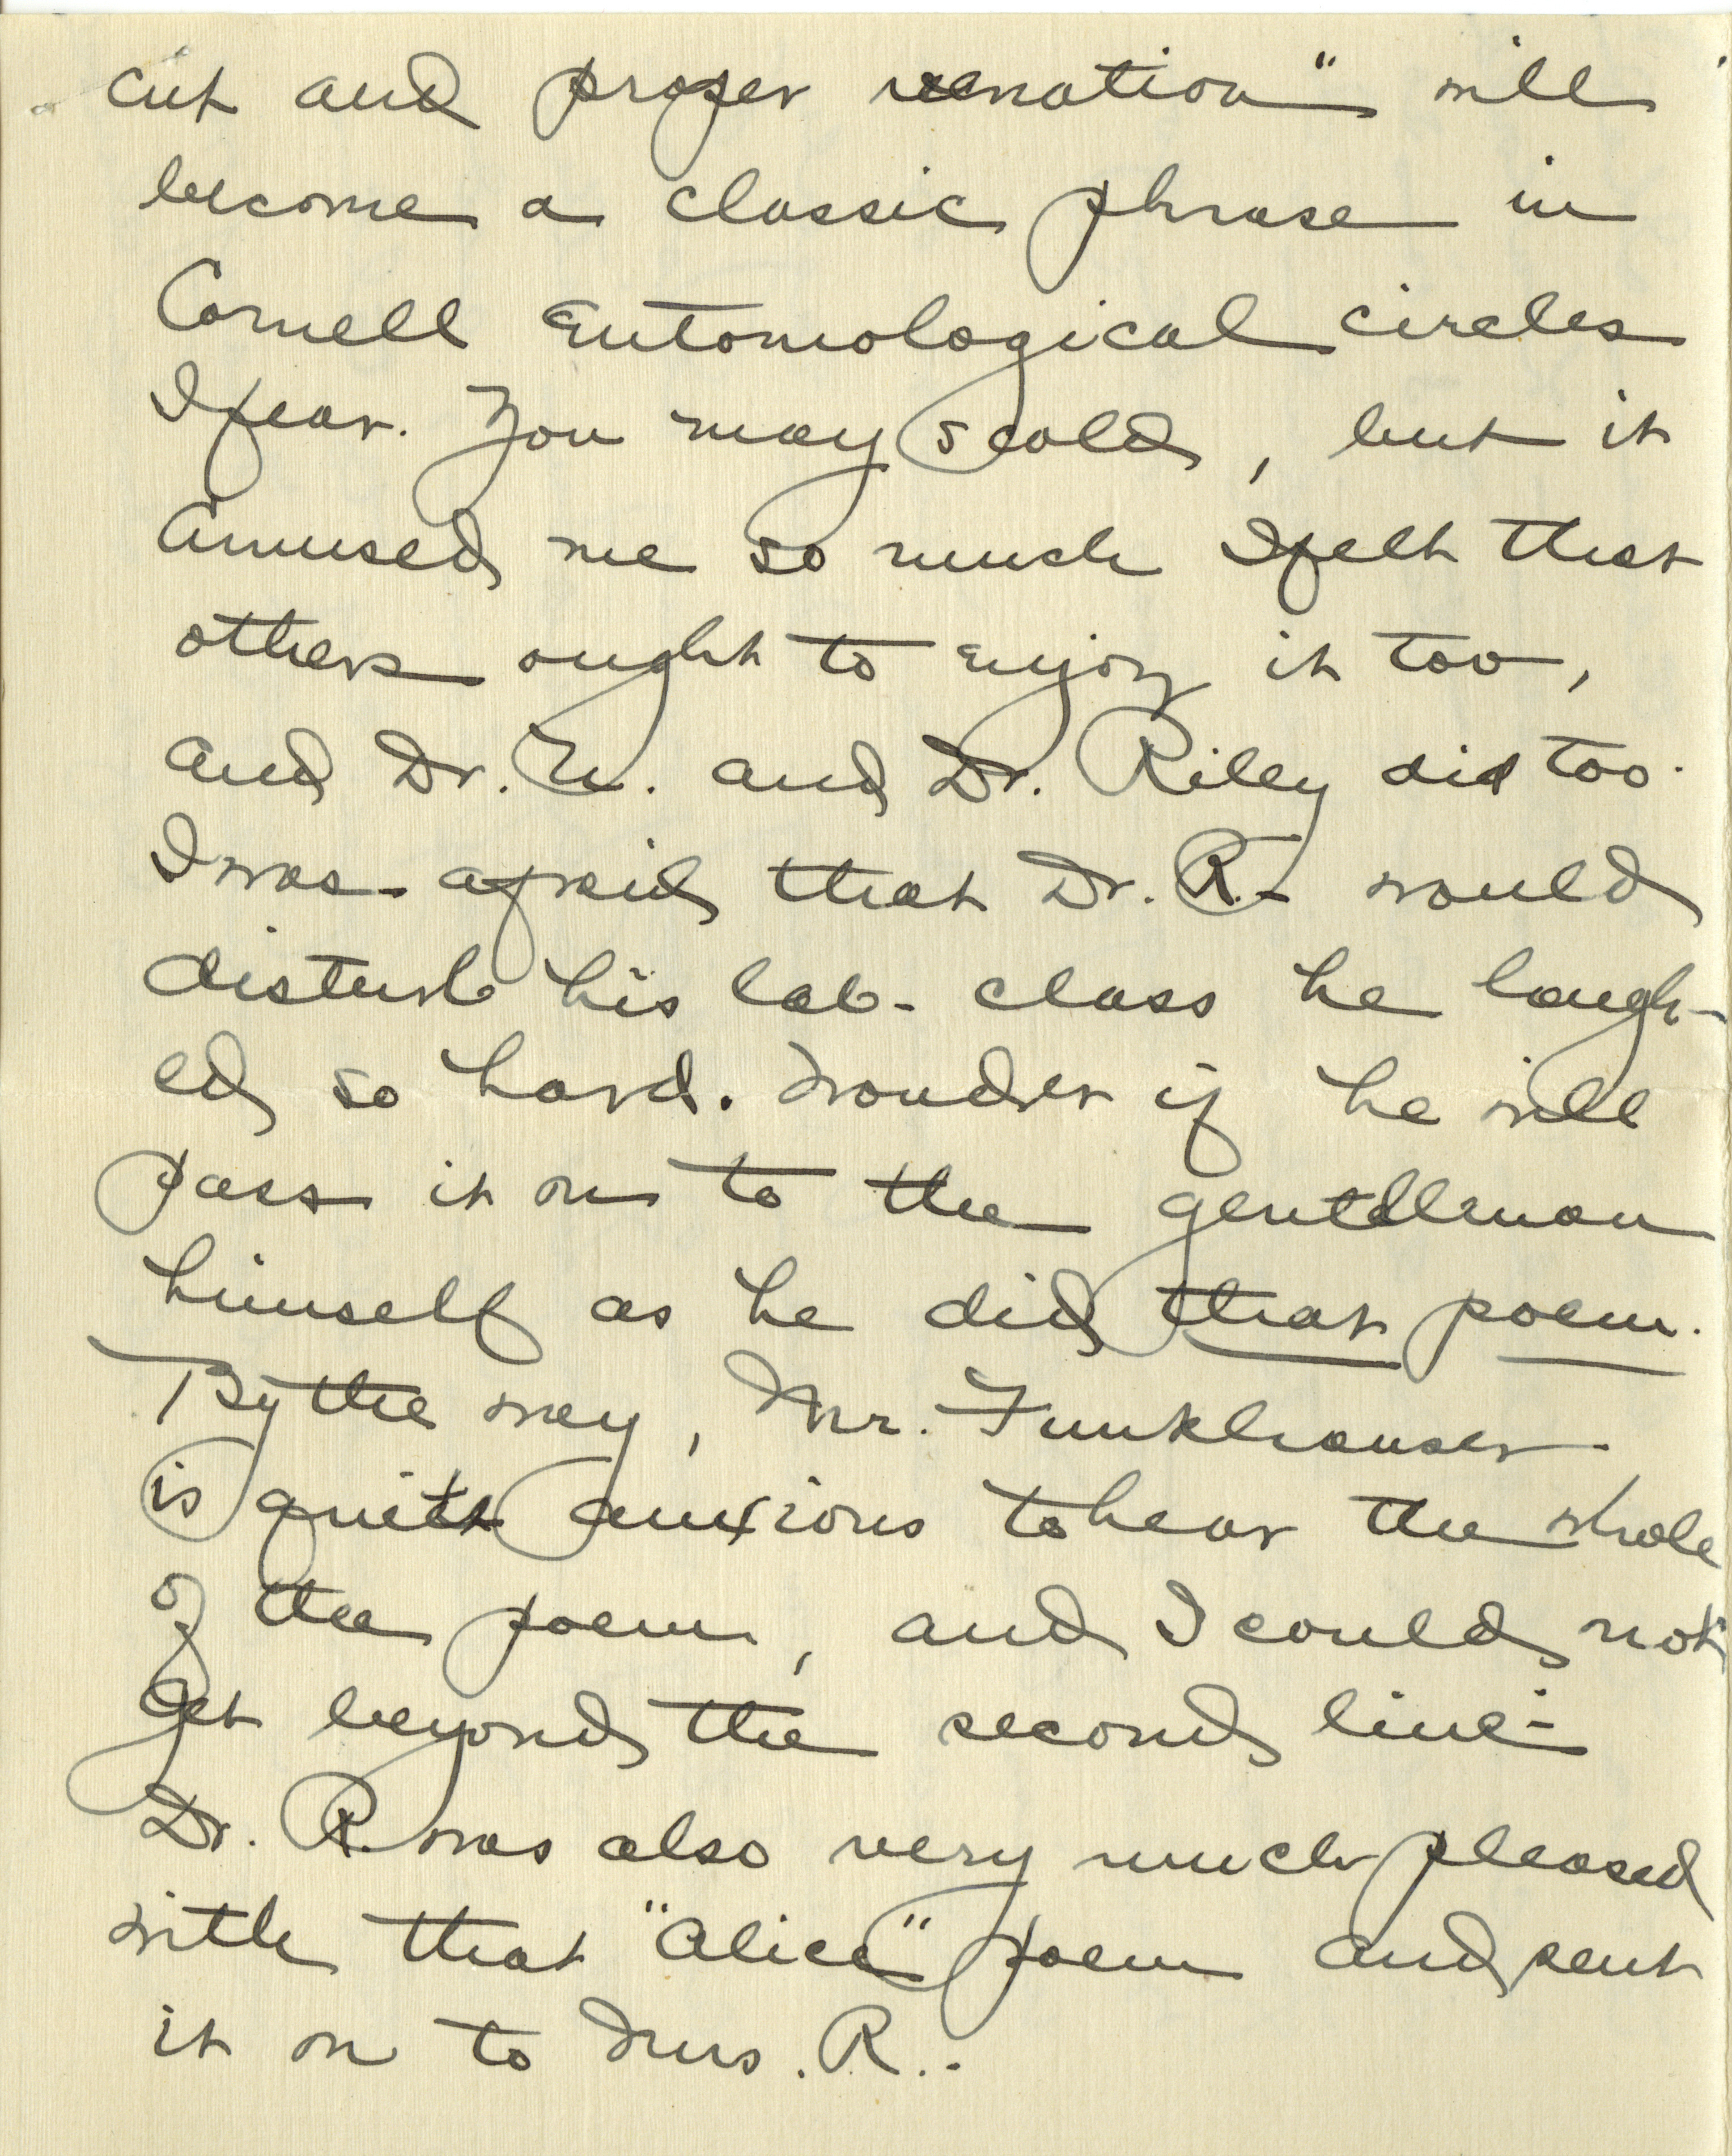 cut and proper venation" will
become a classic phrase in
Cornell Entomological circles
I fear. You may scold, but it
amused me so much I felt that
others ought to enjoy it too,
and Dr. N. and Dr. Riley did too.
I was afraid that Dr. R. would
disturb his lab. class he laugh-
ed so hard. Wonder if he will
pass it on to the gentleman
himself as he did that poem.
By the way, Mr. Funkhouser
is quite anxious to hear the whole
of the poem, and I could not
get beyond the second line.
Dr. R. was also very much pleased
with that "Alice" poem and sent
it on to Mrs. R..